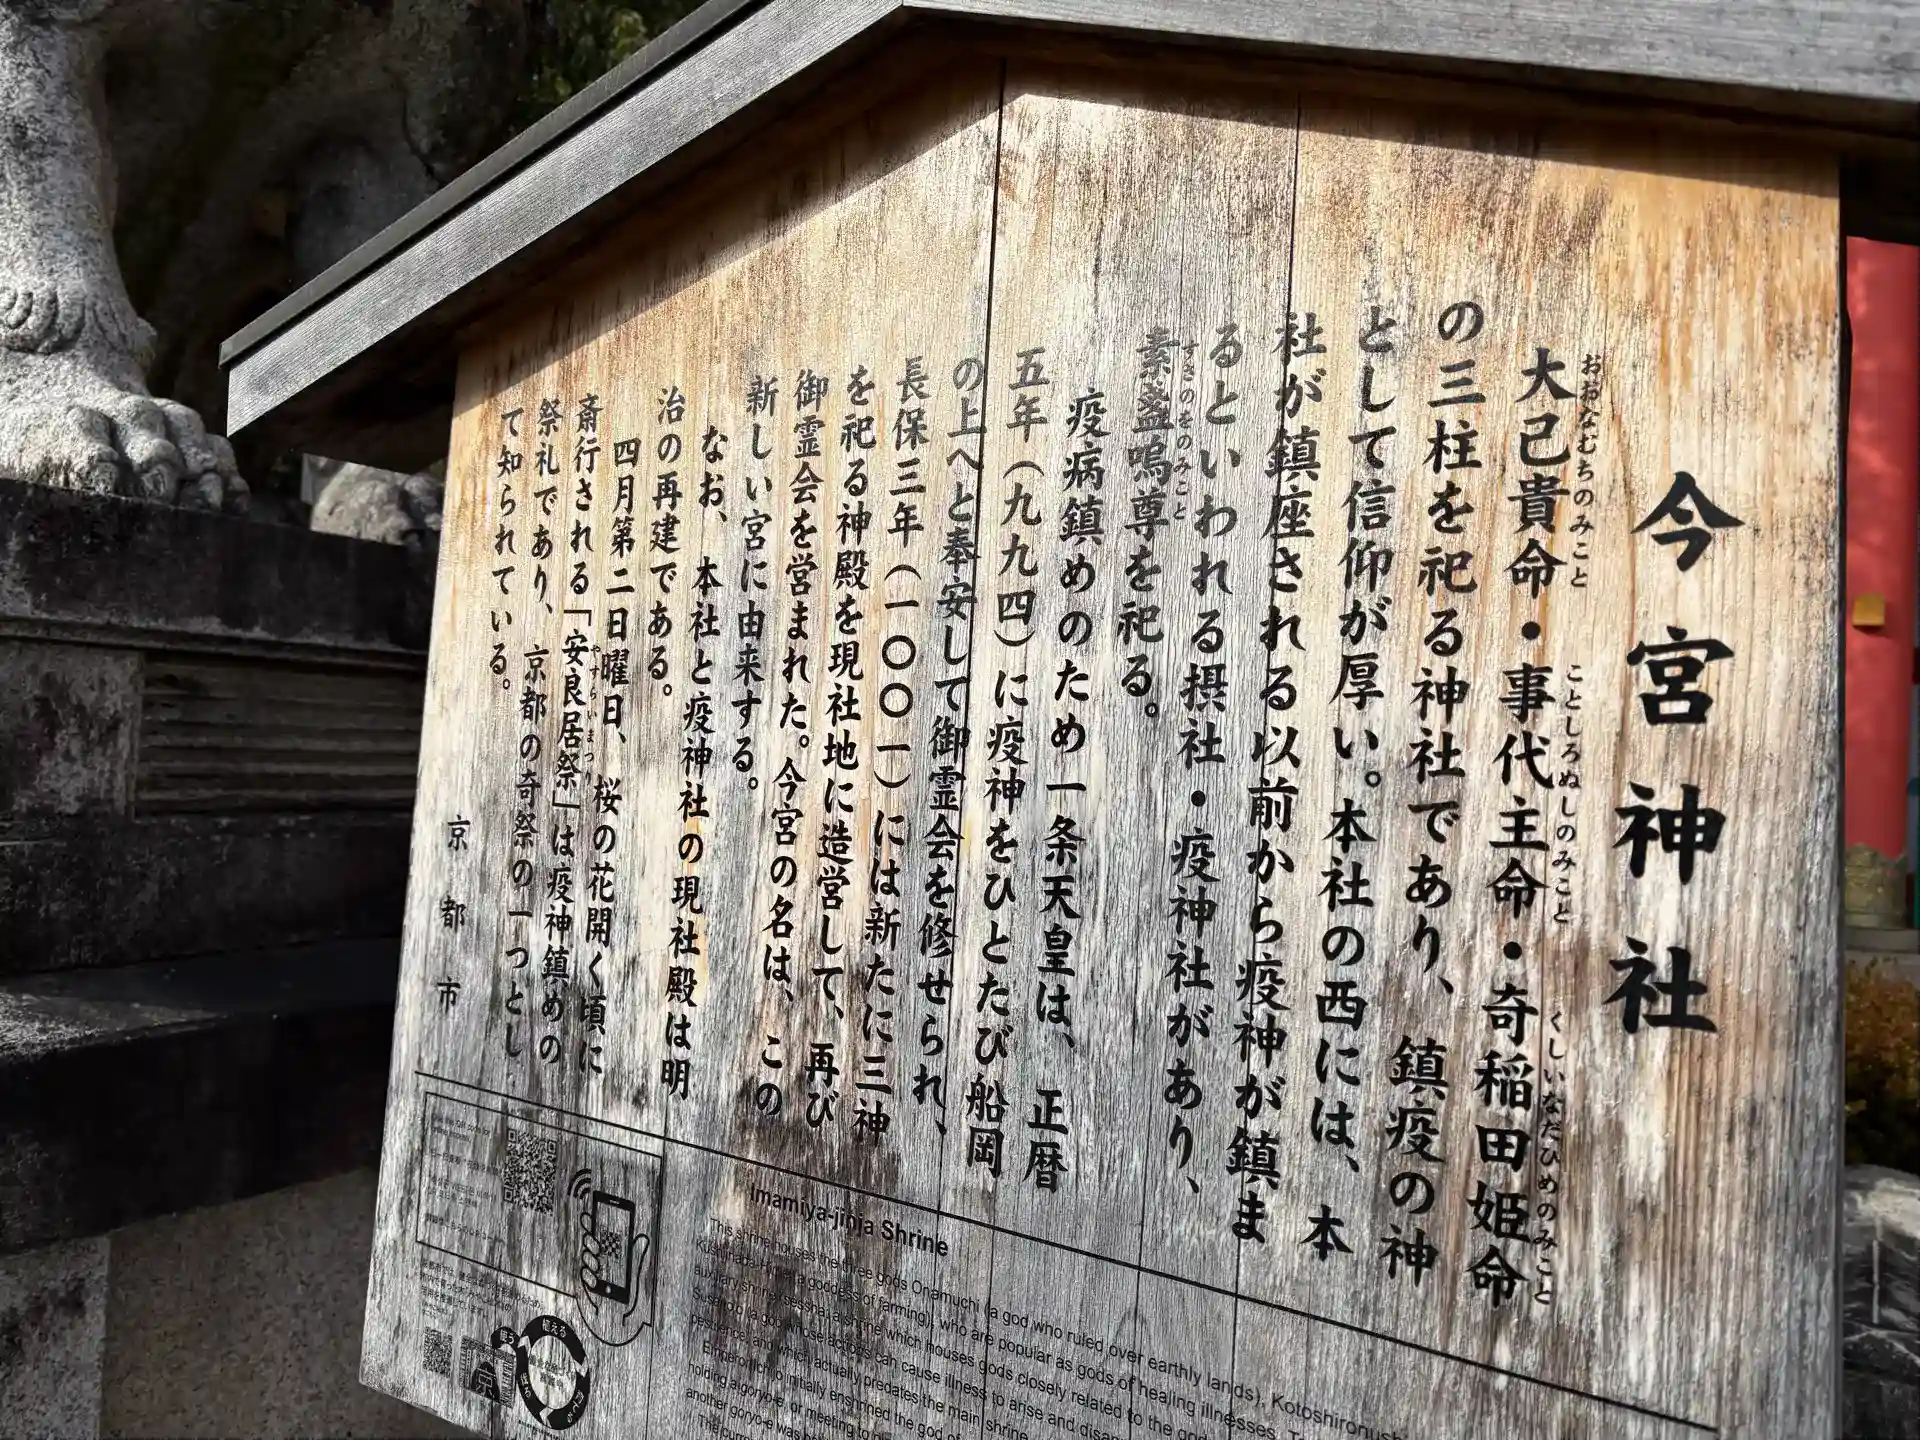 今宮神社
大己貴命・事代主命・奇稲田姫命
おおなむちのみこと ことしろぬしのみこと くしいなだひめのみこと
の三柱を祀る神社であり、鎮疫の神
として信仰が厚い。本社の西には、本
社が鎮座される以前から疫神が鎮ま
るといわれる摂社・疫神社があり、
素盞嗚尊を祀る。
すさのをのみこと
疫病鎮めのため一条天皇は、正暦
五年（九九四）に疫神をひとたび船岡
の上へと奉安して御霊会を修せられ、
長保三年（一〇〇一）には新たに三神
を祀る神殿を現社地に造営して、再び
御霊会を営まれた。今宮の名は、この
新しい宮に由来する。
なお、本社と疫神社の現社殿は明
治の再建である。
四月第二日曜日、桜の花開く頃に
斎行される「安良居祭」は疫神鎮めの
やすらいまつり
祭礼であり、京都の奇祭の一つとし
て知られている。
京都市
Imamiya-jinja Shrine
This shrine houses the three gods Onamuchi (a god who ruled over earthly lands), Kotoshironushi
Kushinada-Hime (a goddess of farming), who are popular as gods of healing illnesses.
auxiliary shrine (sessha) a shrine which houses gods closely related to the god
Susano'o (a god whose actions can cause illness to arise and
pestilence, and which actually predates the main shrine.
Emperor Ichijo initially enshrined the god of
holding a goryo-e, or meeting to
another goryo-e was
The
京